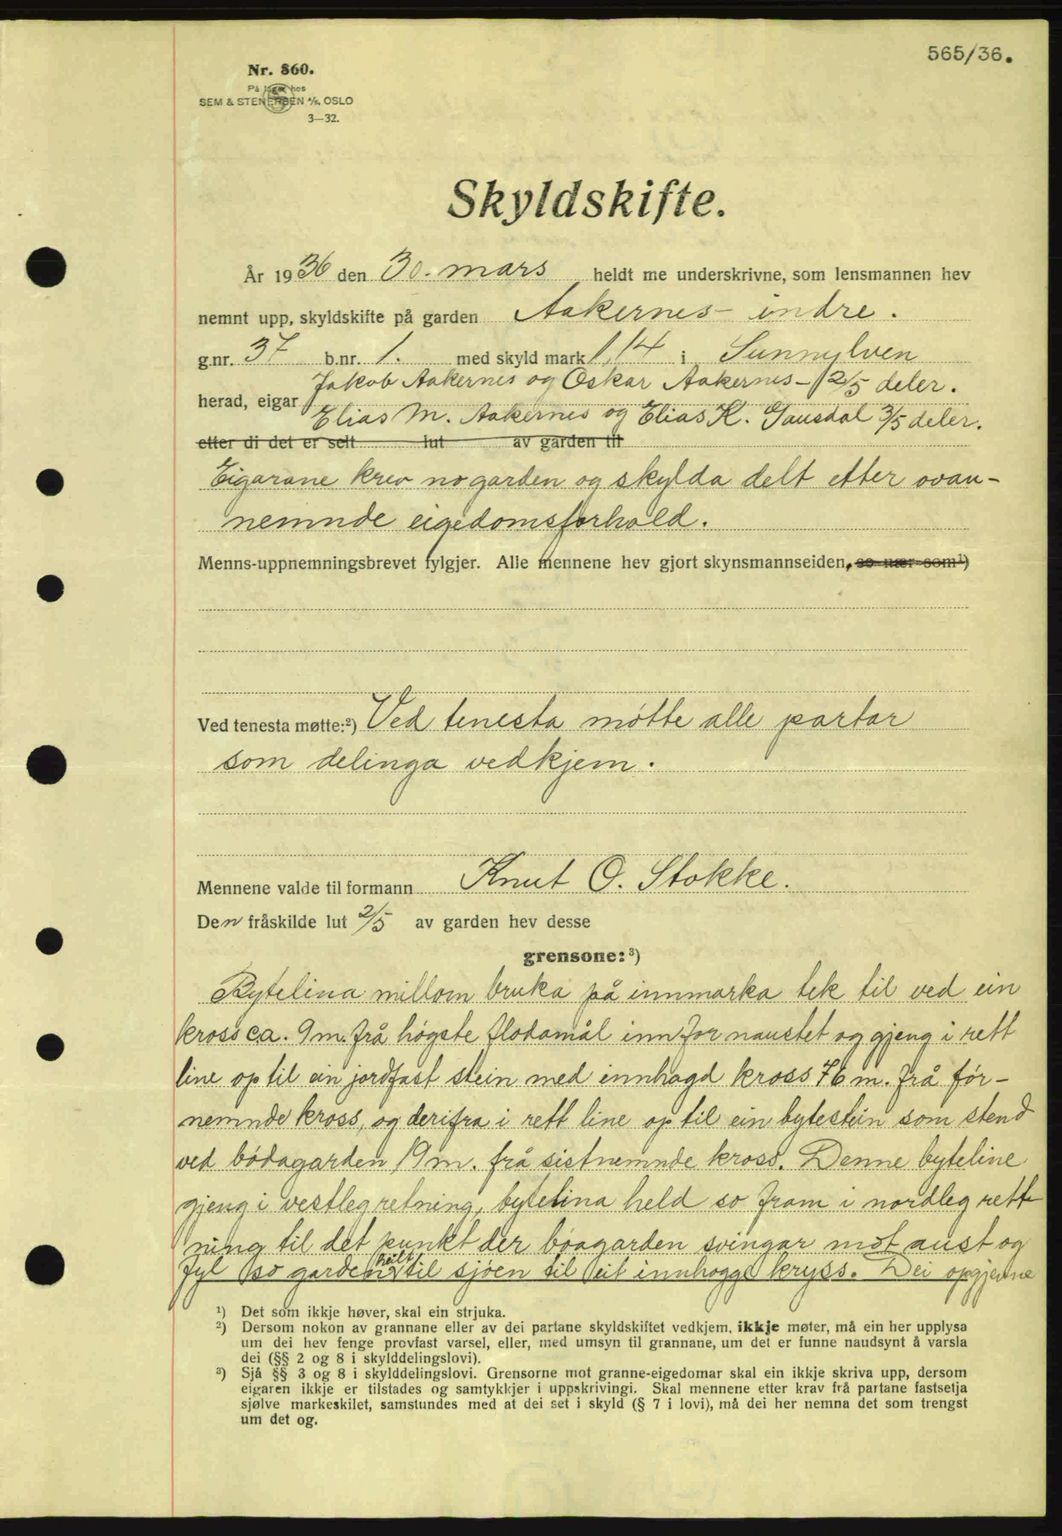 565/36.
Nr. 860.
På lager hos
SEM & STENERSEN A/S, OSLO
3—32.
Skyldskifte.
År 1936 den 30. mars heldt me underskrivne, som lensmannen hev
nemnt upp, skyldskifte på garden Aakernes- indre.
g.nr. 37 b.nr. 1. med skyld mark 1,14 i Sunnylven
Jakob Aakernes og Oskar Aakernes- 2/5 deler.
herad, eigar Elias M. Aakernes og Elias K. Gausdal 3/5 deler.
etter di det er selt lut av garden til
Eigarane krev no garden og skylda delt etter ovan-
nemnde eigedomsforhold.
Menns-uppnemningsbrevet fylgjer. Alle mennene hev gjort skynsmannseiden, so nær som¹)
Ved tenesta møtte:²) Ved tenesta møtte alle partar
som delinga vedkjem.
Mennene valde til formann Knut O. Stokke.
Den fråskilde lut 2/5 av garden hev desse
grensone:³)
Bytelina millom bruka på innmarka tek til ved ein
kross ca. 9 m. frå høgste flodamål innfor naustet og gjeng i rett
line op til ein jordfast stein med innhogd kross 76 m. frå før-
nemnde kross, og derifra i rett line op til ein bytestein som stend
ved bødagarden 19 m. frå sistnemnde kross. Denne byteline
gjeng i vestleg retning, bytelina held so fram i nordleg rett-
ning til det punkt der bøagarden svingar mot aust og
fyl so garden heilt til sjøen til eit innhogge kryss. Dei opgjevne
¹) Det som ikkje høver, skal ein strjuka.
²) Dersom nokon av grannane eller av dei partane skyldskiftet vedkjem, ikkje møter, må ein her upplysa
um dei hev fenge provfast varsel, eller, med umsyn til grannane, um det er funne naudsynt å varsla
dei (§§ 2 og 8 i skylddelingslovi).
³) Sjå §§ 3 og 8 i skylddelingslovi. Grensorne mot granne-eigedomar skal ein ikkje skriva upp, dersom
eigaren ikkje er tilstades og samtykkjer i uppskrivingi. Skal mennene etter krav frå partane fastsetja
sjølve markeskilet, samstundes med at dei set i skyld (§ 7 i lovi), må dei her nemna det som trengst
um det og.